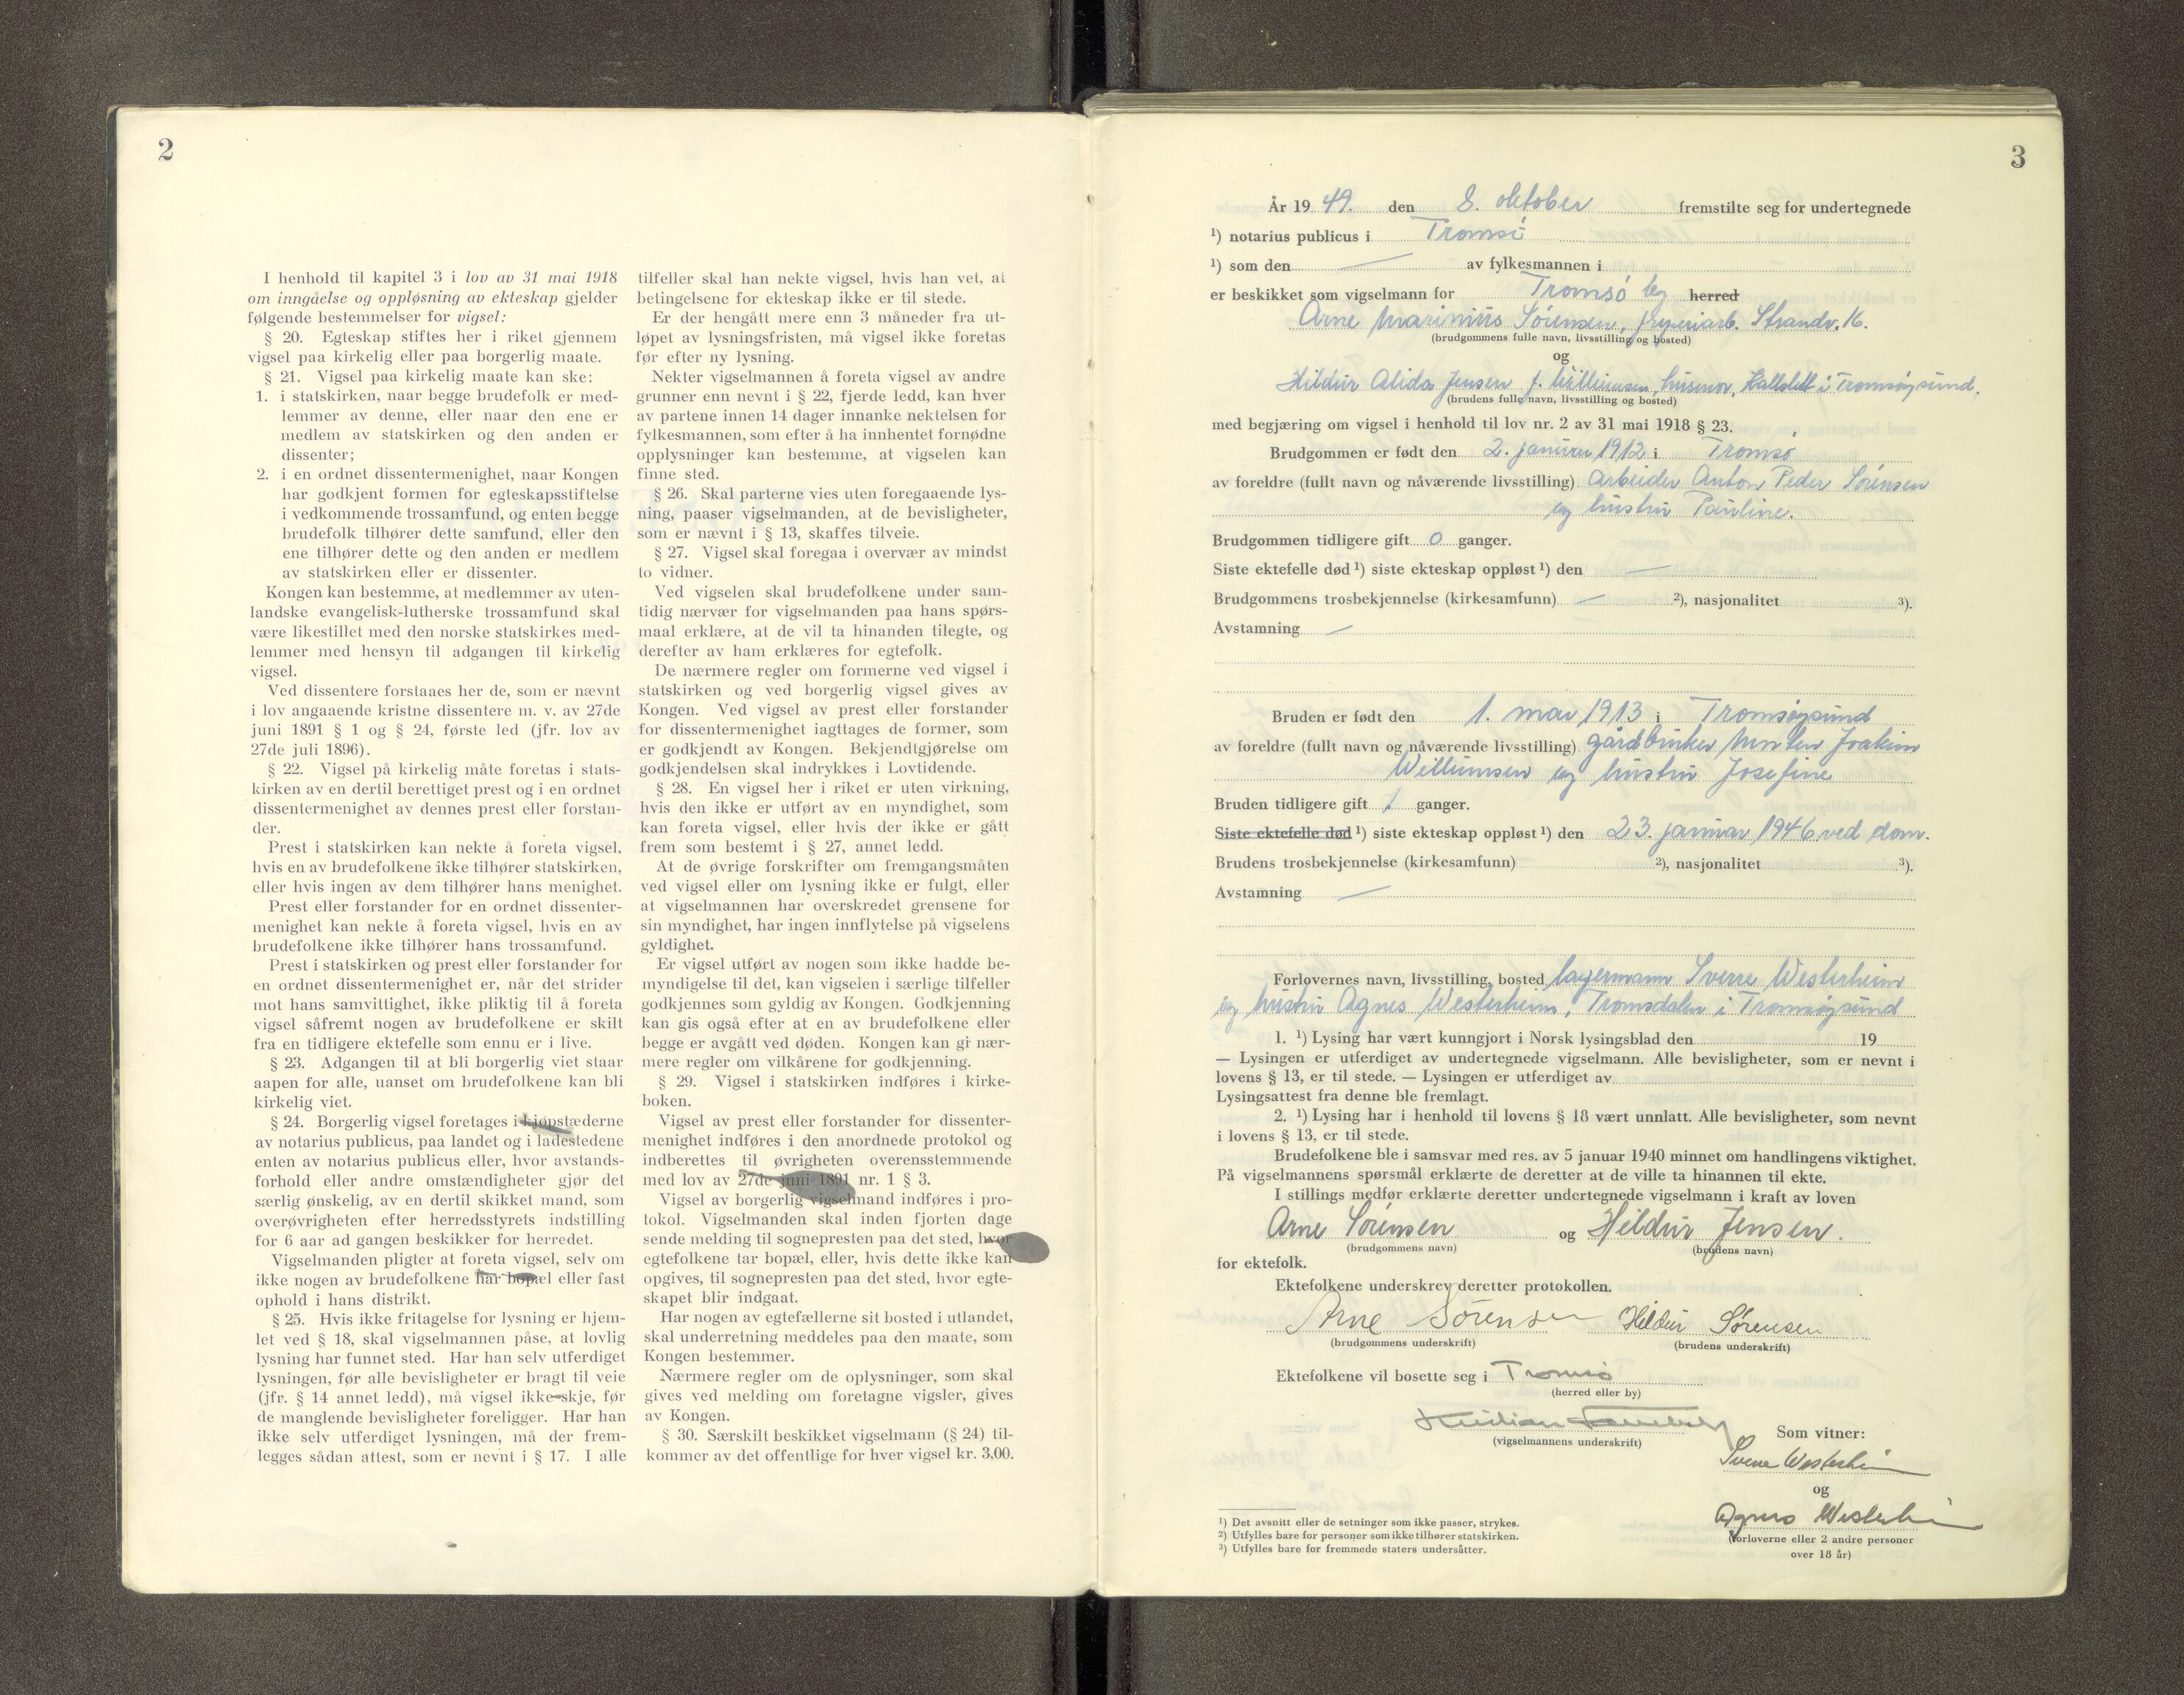 2
I henhold til kapitel 3 i lov av 31 mai 1918
om inngåelse og oppløsning av ekteskap gjelder
følgende bestemmelser for vigsel:
§ 20. Egteskap stiftes her i riket gjennem
vigsel paa kirkelig eller paa borgerlig maate.
§ 21. Vigsel paa kirkelig maate kan ske:
1. i statskirken, naar begge brudefolk er med-
lemmer av denne, eller naar den ene er
medlem av statskirken og den anden er
dissenter;
2. i en ordnet dissentermenighet, naar Kongen
har godkjent formen for egteskapsstiftelse
i vedkommende trossamfund, og enten begge
brudefolk tilhører dette samfund, eller den
ene tilhører dette og den anden er medlem
av statskirken eller er dissenter.
Kongen kan bestemme, at medlemmer av uten-
landske evangelisk-lutherske trossamfund skal
være likestillet med den norske statskirkes med-
lemmer med hensyn til adgangen til kirkelig
vigsel.
Ved dissentere forstaaes her de, som er nævnt
i lov angaaende kristne dissentere m. v. av 27de
juni 1891 § 1 og § 24, første led (jfr. lov av
27de juli 1896).
§ 22. Vigsel på kirkelig måte foretas i stats-
kirken av en dertil berettiget prest og i en ordnet
dissentermenighet av dennes prest eller forstan-
der.
Prest i statskirken kan nekte å foreta vigsel,
hvis en av brudefolkene ikke tilhører statskirken,
eller hvis ingen av dem tilhører hans menighet.
Prest eller forstander for en ordnet dissenter-
menighet kan nekte å foreta vigsel, hvis en av
brudefolkene ikke tilhører hans trossamfund.
Prest i statskirken og prest eller forstander for
en ordnet dissentermenighet er, når det strider
mot hans samvittighet, ikke pliktig til å foreta
vigsel såfremt nogen av brudefolkene er skilt
fra en tidligere ektefelle som ennu er i live.
§ 23. Adgangen til at bli borgerlig viet staar
aapen for alle, uanset om brudefolkene kan bli
kirkelig viet.
§ 24. Borgerlig vigsel foretages i kjøpstæderne
av notarius publicus, paa landet og i ladestedene
enten av notarius publicus eller, hvor avstands-
forhold eller andre omstændigheter gjør det
særlig ønskelig, av en dertil skikket mand, som
overøvrigheten efter herredsstyrets indstilling
for 6 aar ad gangen beskikker for herredet.
Vigselmanden pligter at foreta vigsel, selv om
ikke nogen av brudefolkene har bopæl eller fast
ophold i hans distrikt.
§ 25. Hvis ikke fritagelse for lysning er hjem-
let ved § 18, skal vigselmannen påse, at lovlig
lysning har funnet sted. Har han selv utferdiget
lysningen, før alle bevisligheter er bragt til veie
(jfr. § 14 annet ledd), må vigsel ikke skje, før
de manglende bevisligheter foreligger. Har han
ikke selv utferdiget lysningen, må der frem-
legges sådan attest, som er nevnt i § 17. I alle
tilfeller skal han nekte vigsel, hvis han vet, at
betingelsene for ekteskap ikke er til stede.
Er der hengått mere enn 3 måneder fra ut-
løpet av lysningsfristen, må vigsel ikke foretas
før efter ny lysning.
Nekter vigselmannen å foreta vigsel av andre
grunner enn nevnt i § 22, fjerde ledd, kan hver
av partene innen 14 dager innanke nektelsen for
fylkesmannen, som efter å ha innhentet fornødne
opplysninger kan bestemme, at vigselen kan
finne sted.
§ 26. Skal parterne vies uten foregaaende lys-
ning, paaser vigselmanden, at de bevisligheter,
som er nævnt i § 13, skaffes tilveie.
§ 27. Vigsel skal foregaa i overvær av mindst
to vidner.
Ved vigselen skal brudefolkene under sam-
tidig nærvær for vigselmanden paa hans spørs-
maal erklære, at de vil ta hinanden tilegte, og
derefter av ham erklæres for egtefolk.
De nærmere regler om formerne ved vigsel i
statskirken og ved borgerlig vigsel gives av
Kongen. Ved vigsel av prest eller forstander
for dissentermenighet iagttages de former, som
er godkjendt av Kongen. Bekjendtgjørelse om
godkjendelsen skal indrykkes i Lovtidende.
§ 28. En vigsel her i riket er uten virkning,
hvis den ikke er utført av en myndighet, som
kan foreta vigsel, eller hvis der ikke er gått
frem som bestemt i § 27, annet ledd.
At de øvrige forskrifter om fremgangsmåten
ved vigsel eller om lysning ikke er fulgt, eller
at vigselmannen har overskredet grensene for
sin myndighet, har ingen innflytelse på vigselens
gyldighet.
Er vigsel utført av nogen som ikke hadde be-
myndigelse til det, kan vigselen i særlige tilfeller
godkjennes som gyldig av Kongen. Godkjenning
kan gis også efter at en av brudefolkene eller
begge er avgått ved døden. Kongen kan gi nær-
mere regler om vilkårene for godkjenning.
§ 29. Vigsel i statskirken indføres i kirke-
boken.
Vigsel av prest eller forstander for dissenter-
menighet indføres i den anordnede protokol og
indberettes til øvrigheten overensstemmende
med lov av 27de juni 1891 nr. 1 § 3.
Vigsel av borgerlig vigselmand indføres i pro-
tokol. Vigselmanden skal inden fjorten dage
sende melding til sognepresten paa det sted, hvor
egtefolkene tar bopæl, eller, hvis dette ikke kan
opgives, til sognepresten paa det sted, hvor egte-
skapet blir indgaat.
Har nogen av egtefællerne sit bosted i utlandet,
skal underretning meddeles paa den maate, som
Kongen bestemmer.
Nærmere regler om de oplysninger, som skal
gives ved melding om foretagne vigsler, gives
av Kongen.
§ 30. Særskilt beskikket vigselmann (§ 24) til-
kommer av det offentlige for hver vigsel kr. 3,00.
3
År 19 49. den 8. oktober fremstilte seg for undertegnede
¹) notarius publicus i Tromsö
¹) som den — av fylkesmannen i
er beskikket som vigselmann for Tromsö by herred
Arne Marinius Sörensen, fryseriarb. Strandv. 16.
(brudgommens fulle navn, livsstilling og bosted)
og
Hildur Alida Jensen f. Willumsen, husmor, i Tromsöysund.
(brudens fulle navn, livsstilling og bosted)
med begjæring om vigsel i henhold til lov nr. 2 av 31 mai 1918 § 23.
Brudgommen er født den 2. januar 1912 i Tromsö
av foreldre (fullt navn og nåværende livsstilling) Arbeider Anton Peder Sörensen
og hustru Pauline.
Brudgommen tidligere gift 0 ganger.
Siste ektefelle død ¹) siste ekteskap oppløst ¹) den —
Brudgommens trosbekjennelse (kirkesamfunn) — ²), nasjonalitet ³).
Avstamning —
Bruden er født den 1. mai 1913 i Tromsöysund
av foreldre (fullt navn og nåværende livsstilling) gårdbruker Morten Joakim
Willumsen og hustru Josefine
Bruden tidligere gift 1 ganger.
Siste ektefelle død ¹) siste ekteskap oppløst ¹) den 23. januar 1946 ved dom.
Brudens trosbekjennelse (kirkesamfunn) ²), nasjonalitet ³).
Avstamning —
Forlovernes navn, livsstilling, bosted lagermann Sverre Westerheim
og hustru Agnes Westerheim, Tromsdalen i Tromsöysund
1. ¹) Lysing har vært kunngjort i Norsk lysingsblad den 19
— Lysingen er utferdiget av undertegnede vigselmann. Alle bevisligheter, som er nevnt i
lovens § 13, er til stede. — Lysingen er utferdiget av
Lysingsattest fra denne ble fremlagt.
2. ¹) Lysing har i henhold til lovens § 18 vært unnlatt. Alle bevisligheter, som nevnt
i lovens § 13, er til stede.
Brudefolkene ble i samsvar med res. av 5 januar 1940 minnet om handlingens viktighet.
På vigselmannens spørsmål erklærte de deretter at de ville ta hinannen til ekte.
I stillings medfør erklærte deretter undertegnede vigselmann i kraft av loven
Arne Sörensen og Hildur Jensen.
(brudgommens navn) (brudens navn)
for ektefolk.
Ektefolkene underskrev deretter protokollen.
Arne Sörensen Hildur Sørensen
(brudgommens underskrift) (brudens underskrift)
Ektefolkene vil bosette seg i Tromsö
(herred eller by)
(vigselmannens underskrift)
Som vitner:
Sverre Westerheim
og
Agnes Westerheim
(forloverne eller 2 andre personer
over 18 år)
¹) Det avsnitt eller de setninger som ikke passer, strykes.
²) Utfylles bare for personer som ikke tilhører statskirken.
³) Utfylles bare for fremmede staters undersåtter.